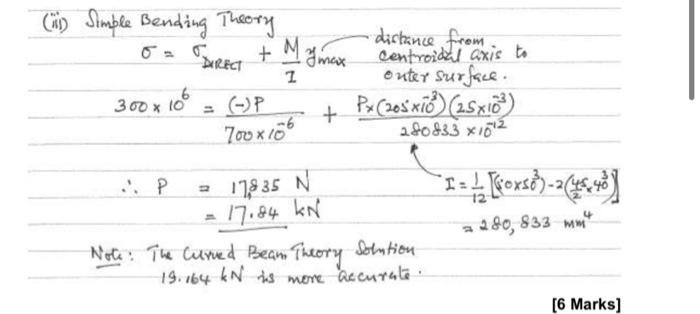 (iii) Simple Bending Theory
σ = σ_DIRECT + M/I y_max
distance from centroidal axis to outer surface.
300 x 10^6 = (-)P / 700 x 10^-6 + P x (205 x 10^-3)(25 x 10^-3) / 280833 x 10^-12
∴ P = 17,835 N
= 17.84 kN
I = 1/12 [(50x50^3) - 2(45/2 x 40^3)]
= 280,833 mm^4
Note: The Curved Beam Theory Solution
19.164 kN is more accurate.
[6 Marks]